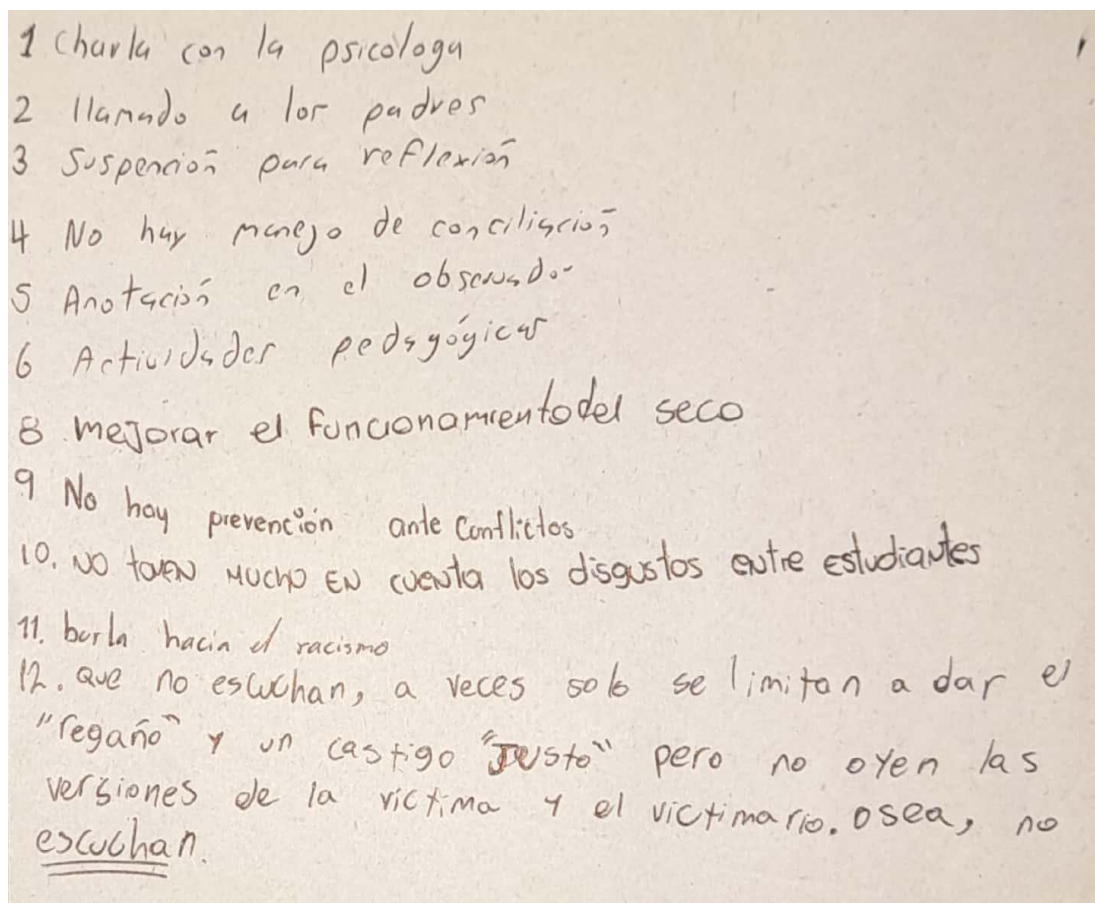 1 Charla con la psicóloga
2 llamado a los padres
3 Suspención para reflexión
4 No hay manejo de conciliación
5 Anotación en el observador
6 Actividades pedagógicas
8 mejorar el funcionamiento del seco
9 No hay prevención ante Conflictos
10. NO toMEN MUCHO EN cuenta los disgustos entre estudiantes
11. burla hacia el racismo
12. que no escuchan, a veces solo se limitan a dar el
"regaño" y un castigo "Justo" pero no oyen las
versiones de la víctima y el victimario. Osea, no
escuchan.